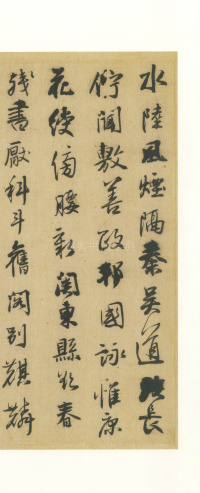 水陸風煙隔秦吳道路長
佇聞敷善政邦國詠惟康
花綬傍腰新關東縣欲春
殘書厭科斗舊閣別麒麟